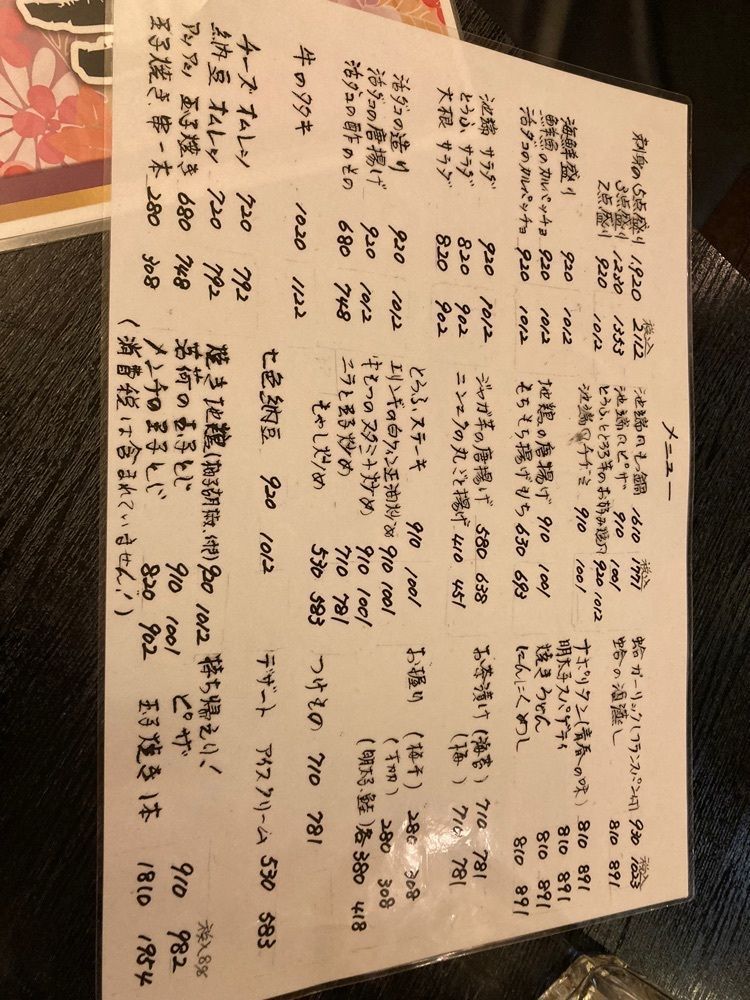 メニュー
税込
刺身の5点盛り 1.920 2112
3点盛り 1230 1353
2点盛り 920 1012
海鮮盛り 920 1012
鮮魚のカルパッチョ 920 1012
活ダコのカルパッチョ 920 1012
池端サラダ 920 1012
とうふサラダ 820 902
大根サラダ 820 902
活ダコの造り 920 1012
活ダコの唐揚げ 920 1012
活ダコの酢のもの 680 748
牛のタタキ 1020 1122
チーズオムレツ 720 792
納豆オムレツ 720 792
アツアツ玉子焼き 680 748
玉子焼き、串一本 280 308
税込
池端のもつ鍋 1610 1771
池端のピザ 910 1001
とうふととろろ芋のお好み焼き 920 1012
池端のチヂミ 910 1001
地鶏の唐揚げ 910 1001
もちもち揚げもち 630 693
ジャガ芋の唐揚げ 580 638
ニンニクの丸ごと揚げ 410 451
とうふステーキ 910 1001
エリンギの白ワイン正油炒め 910 1001
牛もつのスタミナ炒め 910 1001
ニラと玉子炒め 710 781
もやし炒め 530 583
七色納豆 920 1012
焼き地鶏(柚子胡椒、付) 920 1012
茗荷の玉子とじ 910 1001
メンチの玉子とじ 820 902
(消費税は含まれていません!)
税込
蛤ガーリック(フランスパン付) 930 1023
蛤の酒蒸し 810 891
ナポリタン(青春の味) 810 891
明太子スパゲティ 810 891
焼きうどん 810 891
にんにくめし 810 891
お茶漬け (海苔) 710 781
(梅) 710 781
お握り (梅干) 280 308
(オカカ) 280 308
(明太子、鮭)各 380 418
つけもの 710 781
デザート アイスクリーム 530 583
持ち帰えり!
税込8%
ピザ 910 982
玉子焼き1本 1810 1954